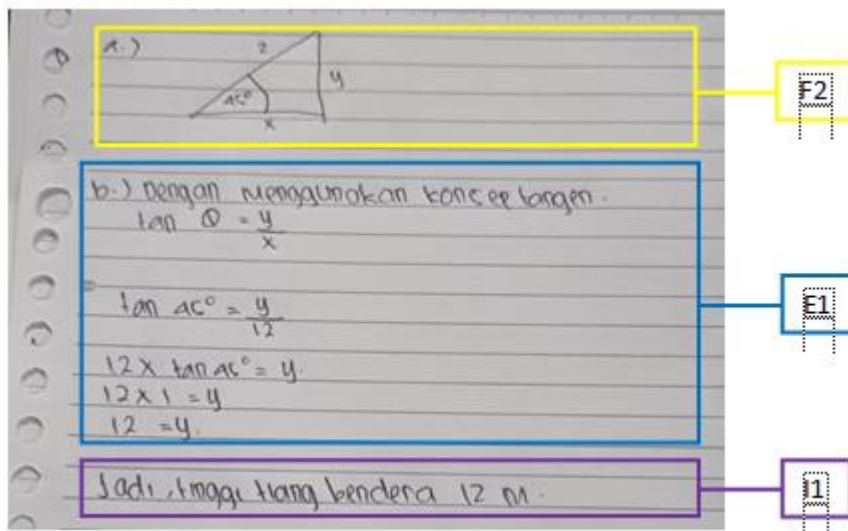 a.)
z
45°
y
x
F2
b.) Dengan menggunakan konsep tangen.
tan θ = y/x
tan 45° = y/12
12 x tan 45° = y.
12 x 1 = y
12 = y.
E1
Jadi, tinggi tiang bendera 12 m.
I1